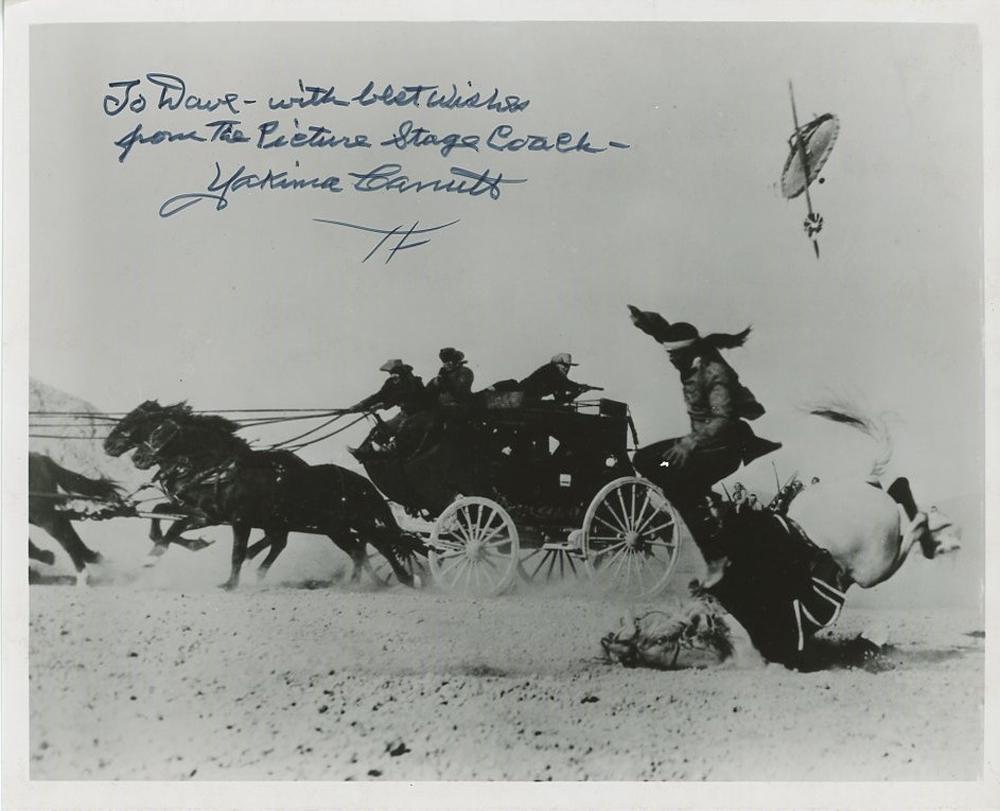 To Dave - with best Wishes
from The Picture Stage Coach -
Yakima Canutt